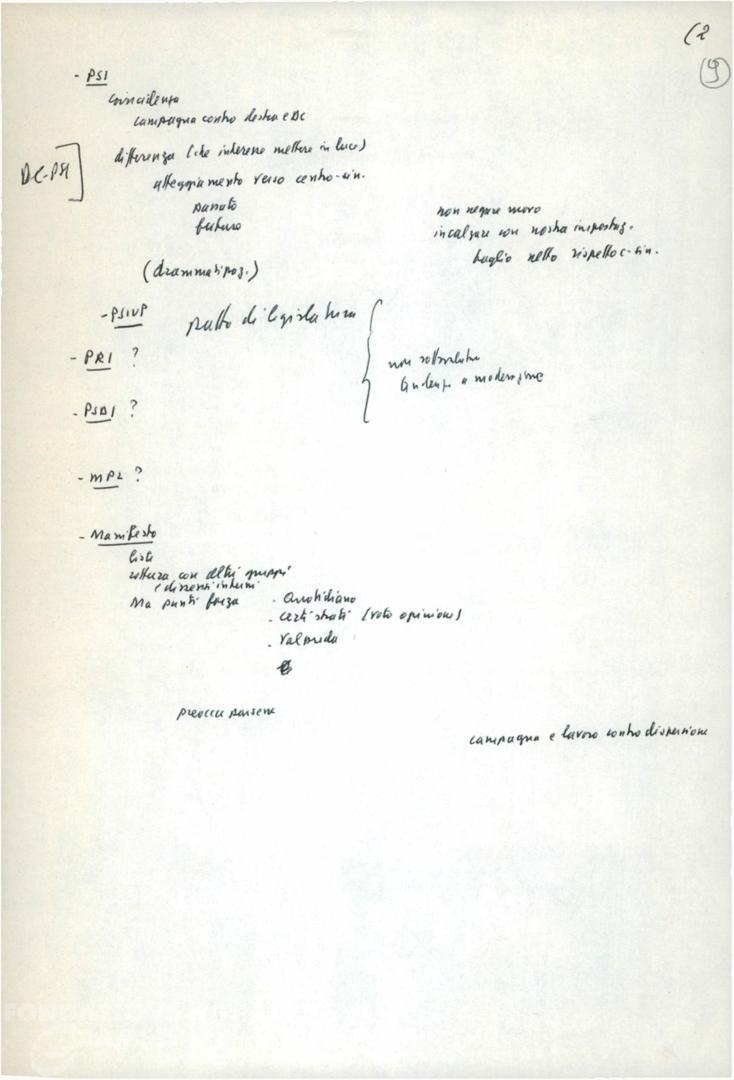 (2
9
- PSI
coincidenza
campagna contro destra e DC
DC-PSI]
differenza (che interessa mettere in luce)
atteggiamento verso centro-sin.
passato
futuro
non negare nuovo
incalzare con nostra impostaz.
taglio netto rispetto c-sin.
(drammatizzaz.)
- PSIUP
patto di legislatura
- PRI ?
non sottovalutare
tendenze a moderazione
- PSDI ?
- MPL ?
- Manifesto
liste
rottura con altri gruppi
(dissensi interni
Ma punti forza
- Quotidiano
- certi strati (voto opinione)
- Valpreda
campagna e lavoro contro dispersione
FON